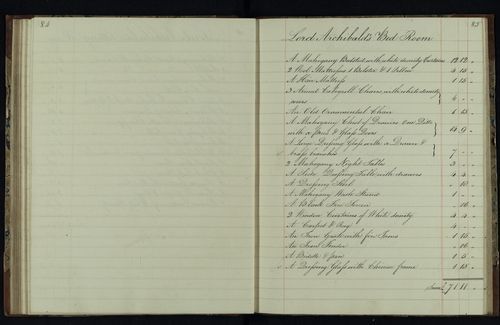 84
85
Lord Archibald's Bed Room
A Mahogany Bedstead with white dimity Curtains 12 12 -
2 Wool Mattresses 1 Bolster & 1 Pillow 4 15 -
A Hair Mattress 1 15 -
3 Armed Chairs with white dimity
covers 4 - -
An Old Ornamental Chair 1 15 -
A Mahogany Chest of Drawers One Ditto
with a pair of Glass Doors 14 9 -
A Large Dressing Glass with a Drawer &
brass branches 7 - -
2 Mahogany Night Tables 3 - -
A Side Dressing Table with drawers 4 4 -
A Dressing Stool - 10 -
A Mahogany Wash Stand 1 - -
A Blank Fire Screen - 10 -
2 Window Curtains of White dimity 4 4 -
A Carpet & Rug 4 - -
An Iron Grate with fire Irons 1 15 -
An Iron Fender - 10 -
A Bidet & pan 1 5 -
A Dressing Glass with Chinese frame 1 15 -
Sum £ 71 11 -